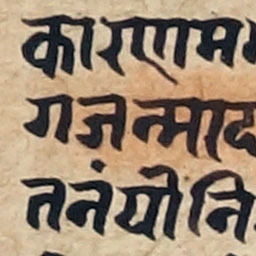 कारणम
गजन्माद
तनंयोनि